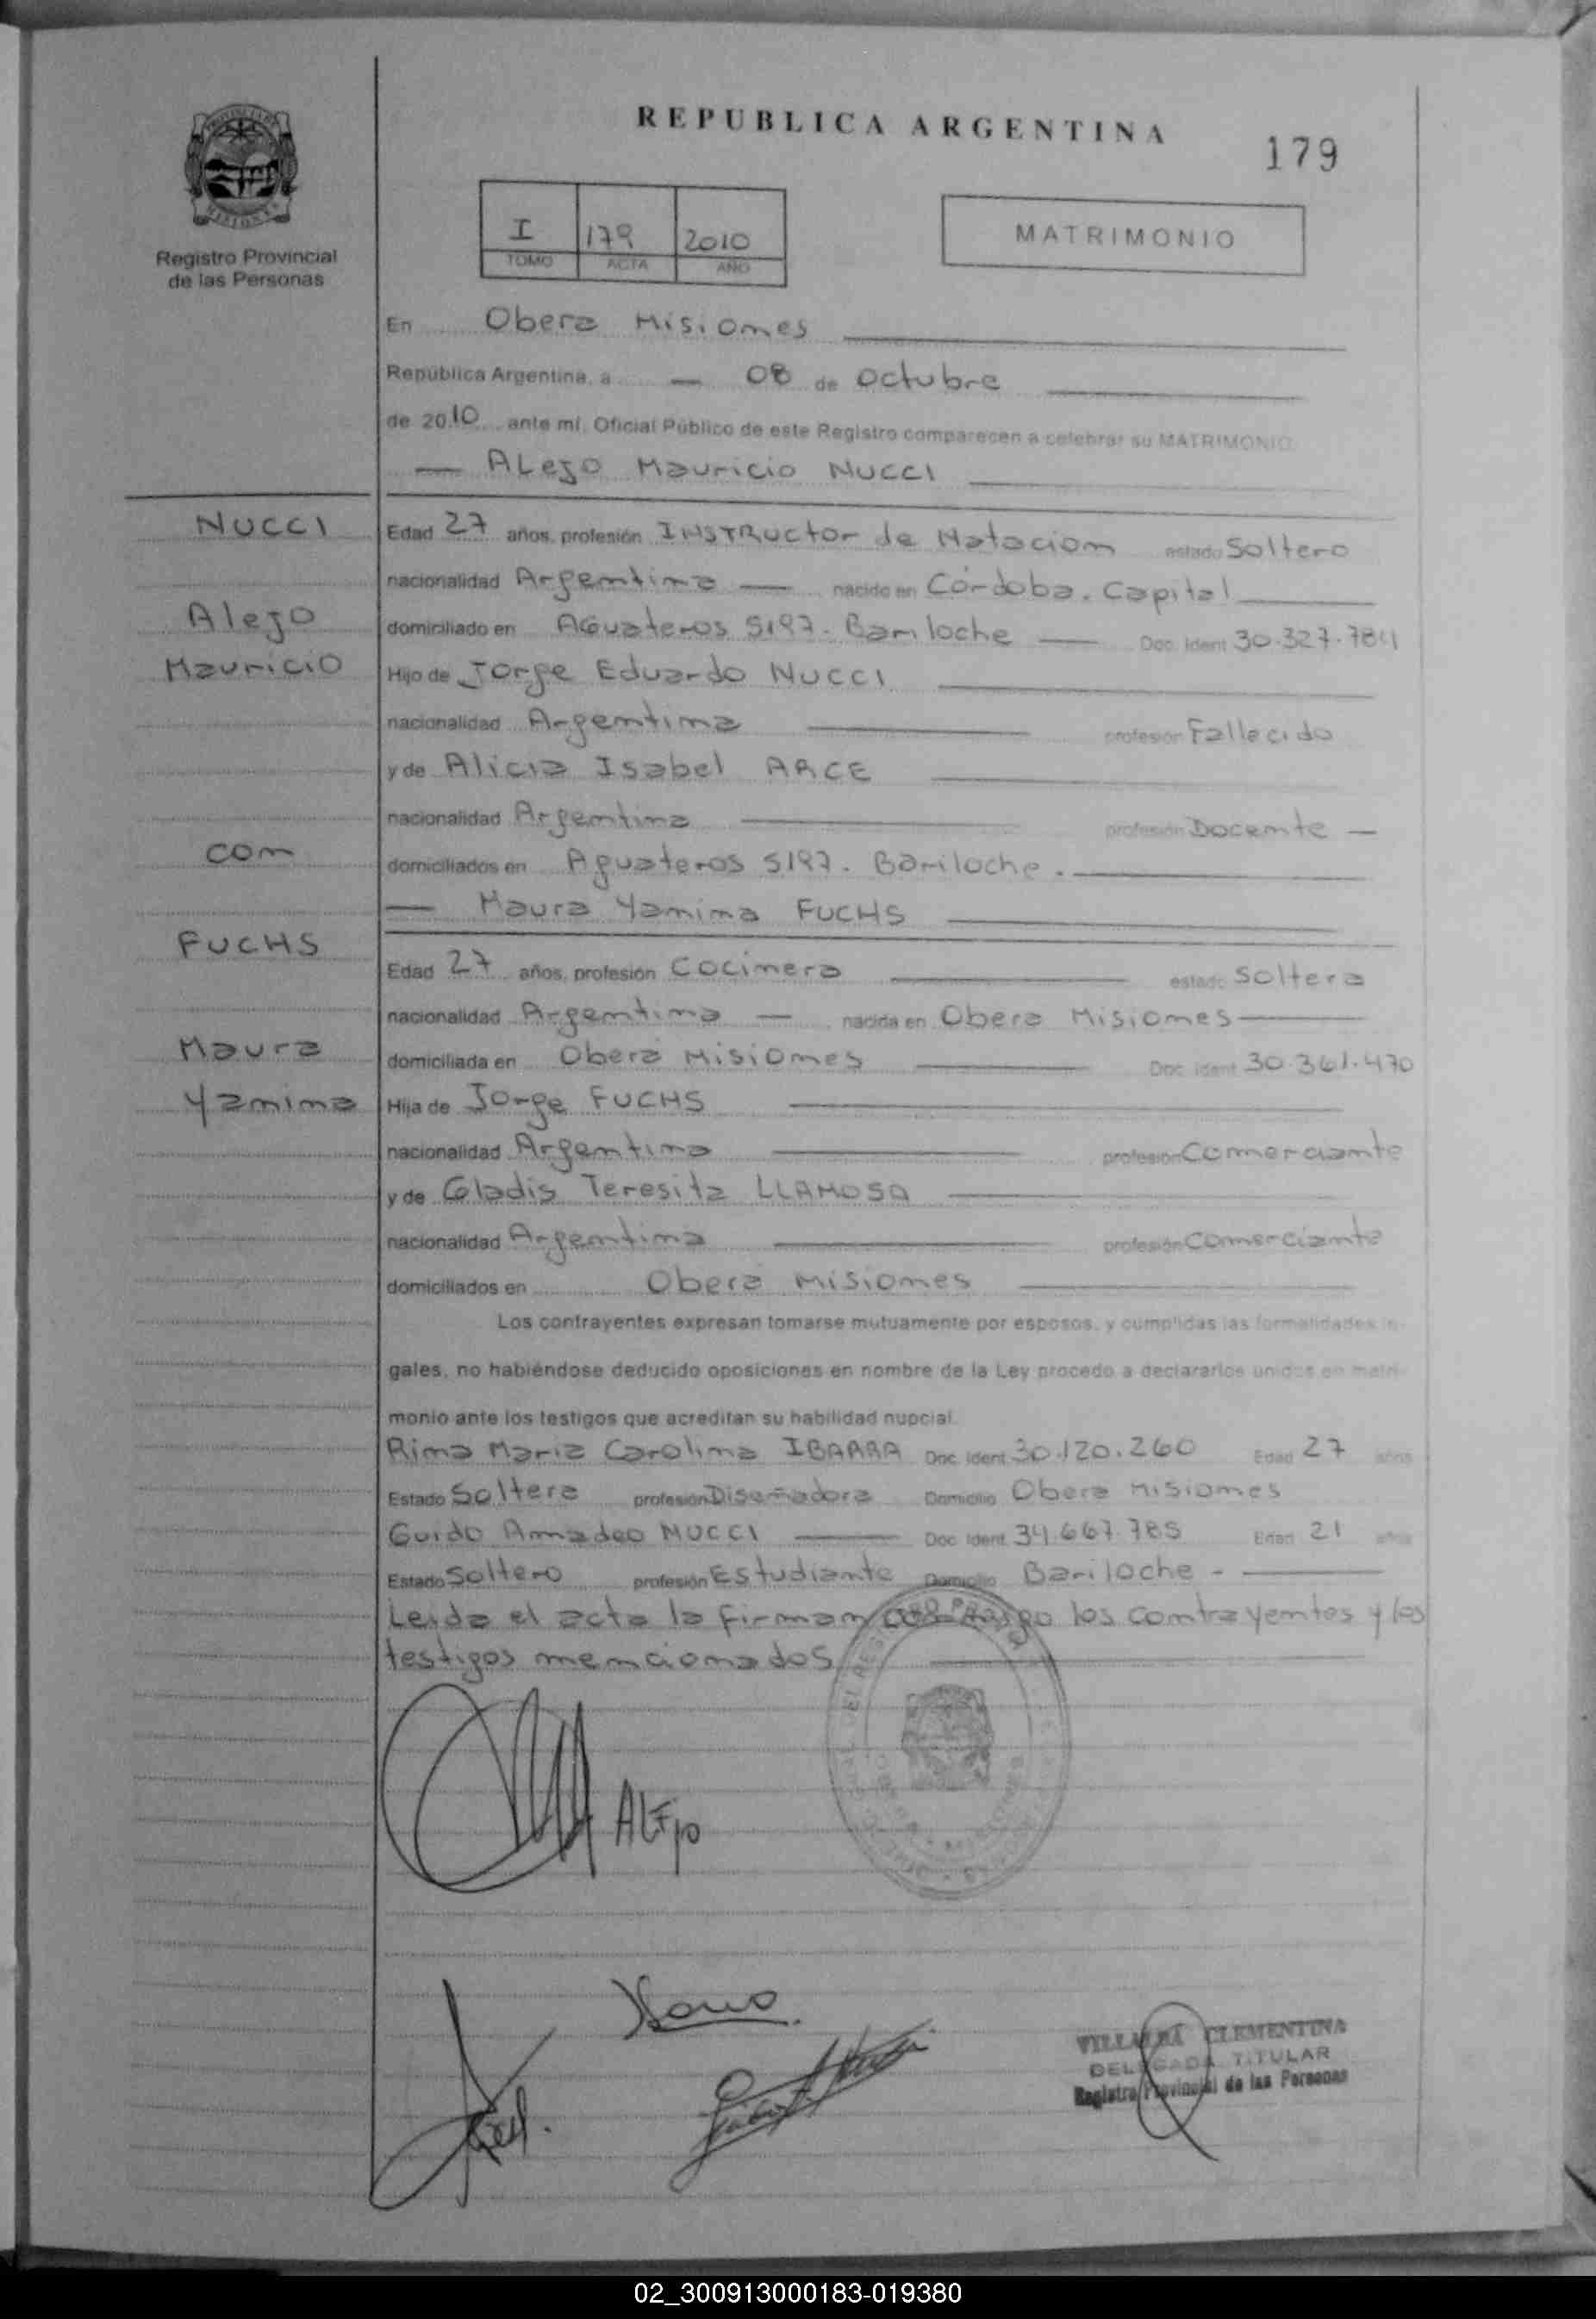 REPUBLICA ARGENTINA
179
PROVINCIA DE
MISIONES
Registro Provincial
de las Personas
I 179 2010
TOMO ACTA AÑO
MATRIMONIO
En Obera Misiones
República Argentina, a 08 de octubre
de 2010 ante mí, Oficial Público de este Registro comparecen a celebrar su MATRIMONIO
Alejo Mauricio NUCCI
NUCCI
Edad 27 años, profesión Instructor de Natacion estado Soltero
nacionalidad Argentina nacido en Córdoba. Capital
Alejo
domiciliado en Aguateros 5197. Bariloche Doc. Ident 30.327.784
Mauricio
Hijo de Jorge Eduardo NUCCI
nacionalidad Argentina profesión Fallecido
y de Alicia Isabel ARCE
nacionalidad Argentina profesión Docente
con
domiciliados en Aguateros 5197. Bariloche.
Maura Yanina FUCHS
FUCHS
Edad 27 años, profesión Cocinera estado Soltera
nacionalidad Argentina nacida en Obera Misiones
Maura
domiciliada en Obera Misiones Doc. Ident 30.361.470
Yanina
Hija de Jorge FUCHS
nacionalidad Argentina profesión Comerciante
y de Gladis Teresita LLAMOSA
nacionalidad Argentina profesión Comerciante
domiciliados en Obera Misiones
Los contrayentes expresan tomarse mutuamente por esposos, y cumplidas las formalidades le-
gales, no habiéndose deducido oposiciones en nombre de la Ley procedo a declararlos unidos en matri-
monio ante los testigos que acreditan su habilidad nupcial.
Rina Maria Carolina IBARRA Doc. Ident 30.120.260 Edad 27 años
Estado Soltera profesión Diseñadora Domicilio Obera Misiones
Guido Amadeo NUCCI Doc. Ident 34.667.785 Edad 21 años
Estado Soltero profesión Estudiante Domicilio Bariloche -
Leida el acta la firman conmigo los contrayentes y los
testigos mencionados
Alejo
VILLALBA CLEMENTINA
DELEGADA TITULAR
Registro Provincial de las Personas
02_300913000183-019380